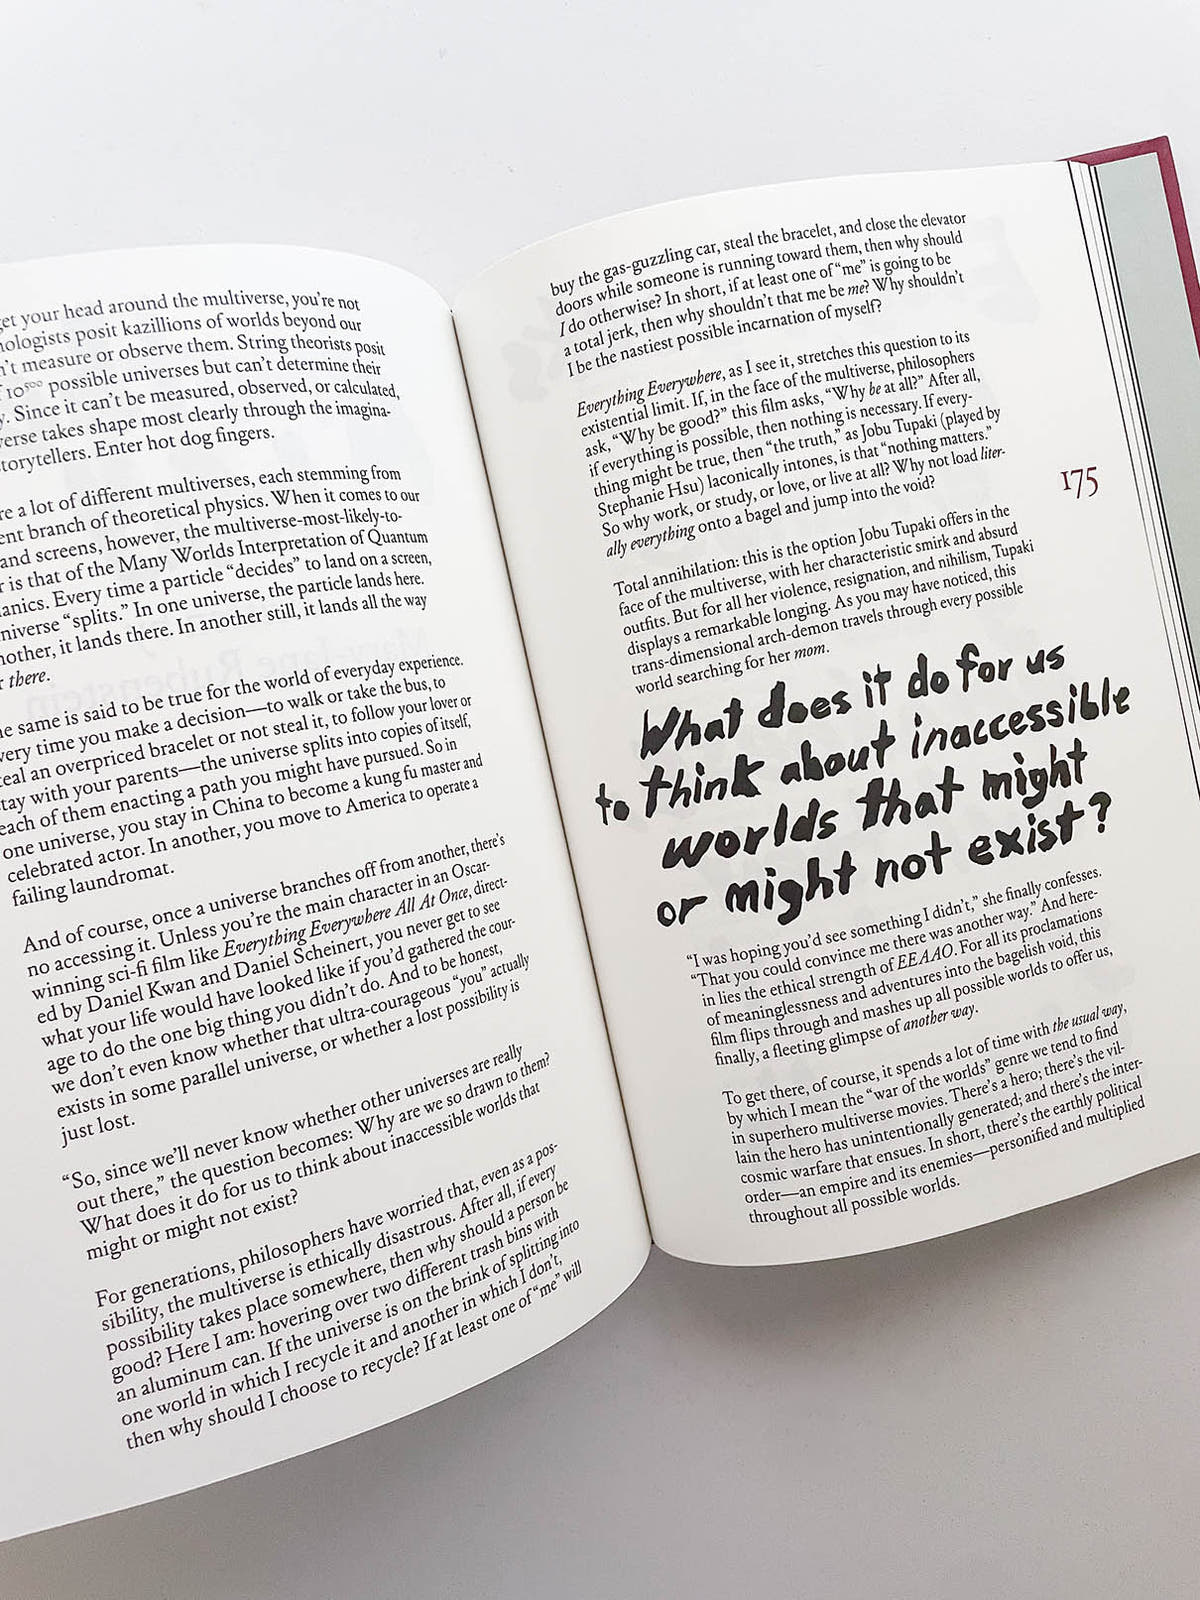 get your head around the multiverse, you're not
ologists posit kazillions of worlds beyond our
n't measure or observe them. String theorists posit
10⁵⁰⁰ possible universes but can't determine their
y. Since it can't be measured, observed, or calculated,
verse takes shape most clearly through the imagina-
storytellers. Enter hot dog fingers.
re a lot of different multiverses, each stemming from
ent branch of theoretical physics. When it comes to our
and screens, however, the multiverse-most-likely-to-
r is that of the Many Worlds Interpretation of Quantum
anics. Every time a particle "decides" to land on a screen,
niverse "splits." In one universe, the particle lands here.
nother, it lands there. In another still, it lands all the way
r there.
he same is said to be true for the world of everyday experience.
very time you make a decision—to walk or take the bus, to
teal an overpriced bracelet or not steal it, to follow your lover or
stay with your parents—the universe splits into copies of itself,
each of them enacting a path you might have pursued. So in
one universe, you stay in China to become a kung fu master and
celebrated actor. In another, you move to America to operate a
failing laundromat.
And of course, once a universe branches off from another, there's
no accessing it. Unless you're the main character in an Oscar-
winning sci-fi film like Everything Everywhere All At Once, direct-
ed by Daniel Kwan and Daniel Scheinert, you never get to see
what your life would have looked like if you'd gathered the cour-
age to do the one big thing you didn't do. And to be honest,
we don't even know whether that ultra-courageous "you" actually
exists in some parallel universe, or whether a lost possibility is
just lost.
"So, since we'll never know whether other universes are really
out there," the question becomes: Why are we so drawn to them?
What does it do for us to think about inaccessible worlds that
might or might not exist?
For generations, philosophers have worried that, even as a pos-
sibility, the multiverse is ethically disastrous. After all, if every
possibility takes place somewhere, then why should a person be
good? Here I am: hovering over two different trash bins with
an aluminum can. If the universe is on the brink of splitting into
one world in which I recycle it and another in which I don't,
then why should I choose to recycle? If at least one of "me" will
buy the gas-guzzling car, steal the bracelet, and close the elevator
doors while someone is running toward them, then why should
I do otherwise? In short, if at least one of "me" is going to be
a total jerk, then why shouldn't that me be me? Why shouldn't
I be the nastiest possible incarnation of myself?
Everything Everywhere, as I see it, stretches this question to its
existential limit. If, in the face of the multiverse, philosophers
ask, "Why be good?" this film asks, "Why be at all?" After all,
if everything is possible, then nothing is necessary. If every-
thing might be true, then "the truth," as Jobu Tupaki (played by
Stephanie Hsu) laconically intones, is that "nothing matters."
So why work, or study, or love, or live at all? Why not load liter-
ally everything onto a bagel and jump into the void?
175
Total annihilation: this is the option Jobu Tupaki offers in the
face of the multiverse, with her characteristic smirk and absurd
outfits. But for all her violence, resignation, and nihilism, Tupaki
displays a remarkable longing. As you may have noticed, this
trans-dimensional arch-demon travels through every possible
world searching for her mom.
What does it do for us
to think about inaccessible
worlds that might
or might not exist?
"I was hoping you'd see something I didn't," she finally confesses.
"That you could convince me there was another way." And here-
in lies the ethical strength of EEAAO. For all its proclamations
of meaninglessness and adventures into the bagelish void, this
film flips through and mashes up all possible worlds to offer us,
finally, a fleeting glimpse of another way.
To get there, of course, it spends a lot of time with the usual way,
by which I mean the "war of the worlds" genre we tend to find
in superhero multiverse movies. There's a hero; there's the vil-
lain the hero has unintentionally generated; and there's the inter-
cosmic warfare that ensues. In short, there's the earthly political
order—an empire and its enemies—personified and multiplied
throughout all possible worlds.